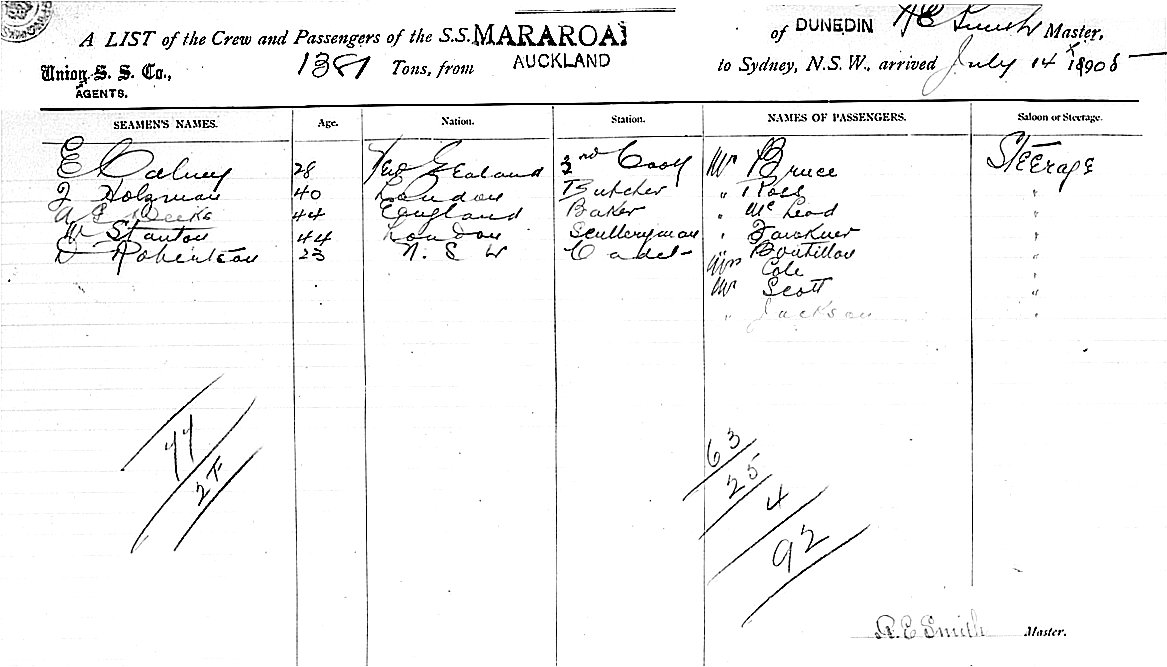 A LIST of the Crew and Passengers of the S.S. MARAROA of DUNEDIN Smith Master,
Union S. S. Co., AGENTS. 1381 Tons, from AUCKLAND to Sydney, N.S.W., arrived July 14 1908
SEAMEN'S NAMES. Age. Nation. Station. NAMES OF PASSENGERS. Saloon or Steerage.
E 28 New Zealand 2nd Cook Mr Bruce Steerage
J Holzman 40 London Butcher " Ross "
A E Weeks 44 England Baker " McLeod "
W Stanton 44 London Sculleryman " Faulkner "
D Robertson 23 N. S W Cadet " "
Mrs Cole "
Mr Scott "
" Jackson "
44
2F
63
25
4
92
R.E Smith Master.